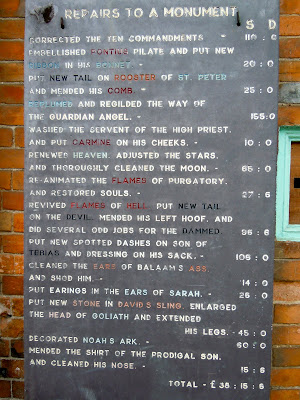 REPAIRS TO A MONUMENT S D
CORRECTED THE TEN COMMANDMENTS - 110 : 0
EMBELLISHED PONTIUS PILATE AND PUT NEW
IN HIS BONNET - 20 : 0
PUT NEW TAIL ON ROOSTER OF ST. PETER
AND MENDED HIS COMB. - 25 : 0
REPLUMED AND REGILDED THE WAY OF
THE GUARDIAN ANGEL. - 155:0
WASHED THE SERVENT OF THE HIGH PRIEST.
AND PUT CARMINE ON HIS CHEEKS. - 10 : 0
RENEWED HEAVEN. ADJUSTED THE STARS.
AND THOROUGHLY CLEANED THE MOON. - 65 : 0
RE-ANIMATED THE FLAMES OF PURGATORY.
AND RESTORED SOULS. - 27 : 6
REVIVED FLAMES OF HELL. PUT NEW TAIL
ON THE DEVIL. MENDED HIS LEFT HOOF. AND
DID SEVERAL ODD JOBS FOR THE DAMMED. 96 : 6
PUT NEW SPOTTED DASHES ON SON OF
TEBIAS AND DRESSING ON HIS SACK. - 106 : 0
CLEANED THE EARS OF BALAAM'S ASS.
AND SHOD HIM. - 14 : 0
PUT EARINGS IN THE EARS OF SARAH. - 26 : 0
PUT NEW STONE IN DAVID'S SLING. ENLARGED
THE HEAD OF GOLIATH AND EXTENDED
HIS LEGS. - 45 : 0
DECORATED NOAH'S ARK. - 60 : 0
MENDED THE SHIRT OF THE PRODIGAL SON.
AND CLEANED HIS NOSE. - 15 : 6
TOTAL - £ 38 : 15 : 6